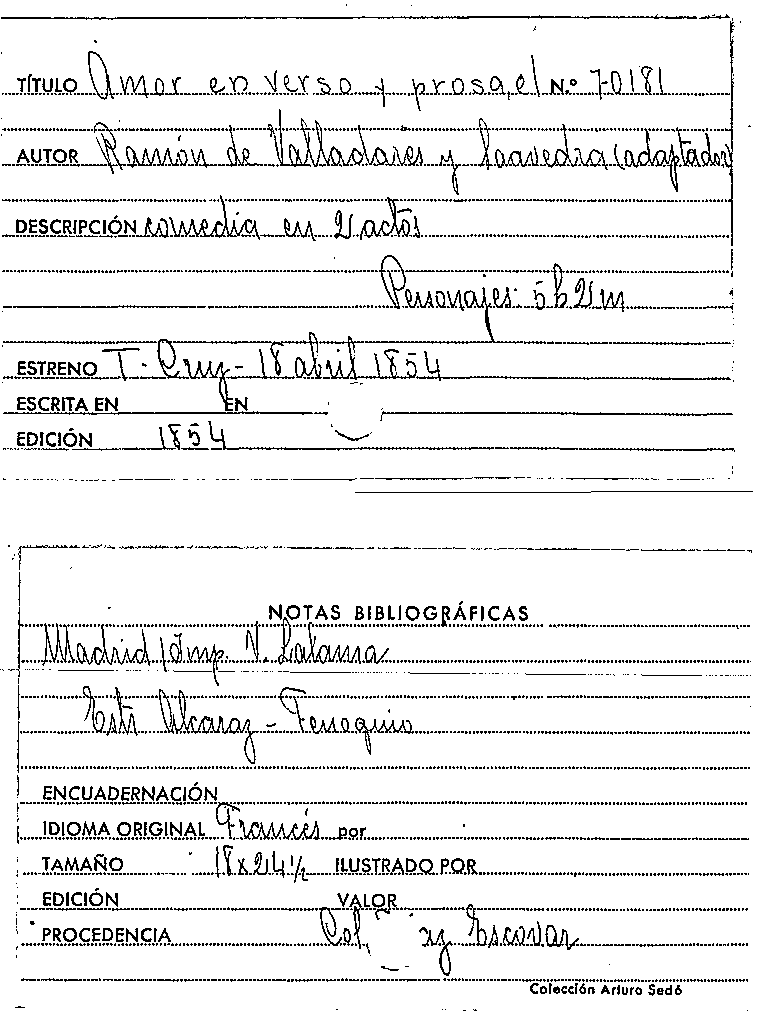 TÍTULO Amor en verso y prosa, el N.º 70181
AUTOR Ramón de Valladares y Saavedra (adaptador)
DESCRIPCIÓN comedia en 2 actos
Personajes: 5 h 2 m
ESTRENO T. Cruz - 18 abril 1854
ESCRITA EN EN
EDICIÓN 1854
NOTAS BIBLIOGRÁFICAS
Madrid Imp. V. Lalama
Estr Alcaraz -
ENCUADERNACIÓN
IDIOMA ORIGINAL Francés por
TAMAÑO 18x24½ ILUSTRADO POR
EDICIÓN VALOR
PROCEDENCIA Col. Escovar
Colección Arturo Sedó